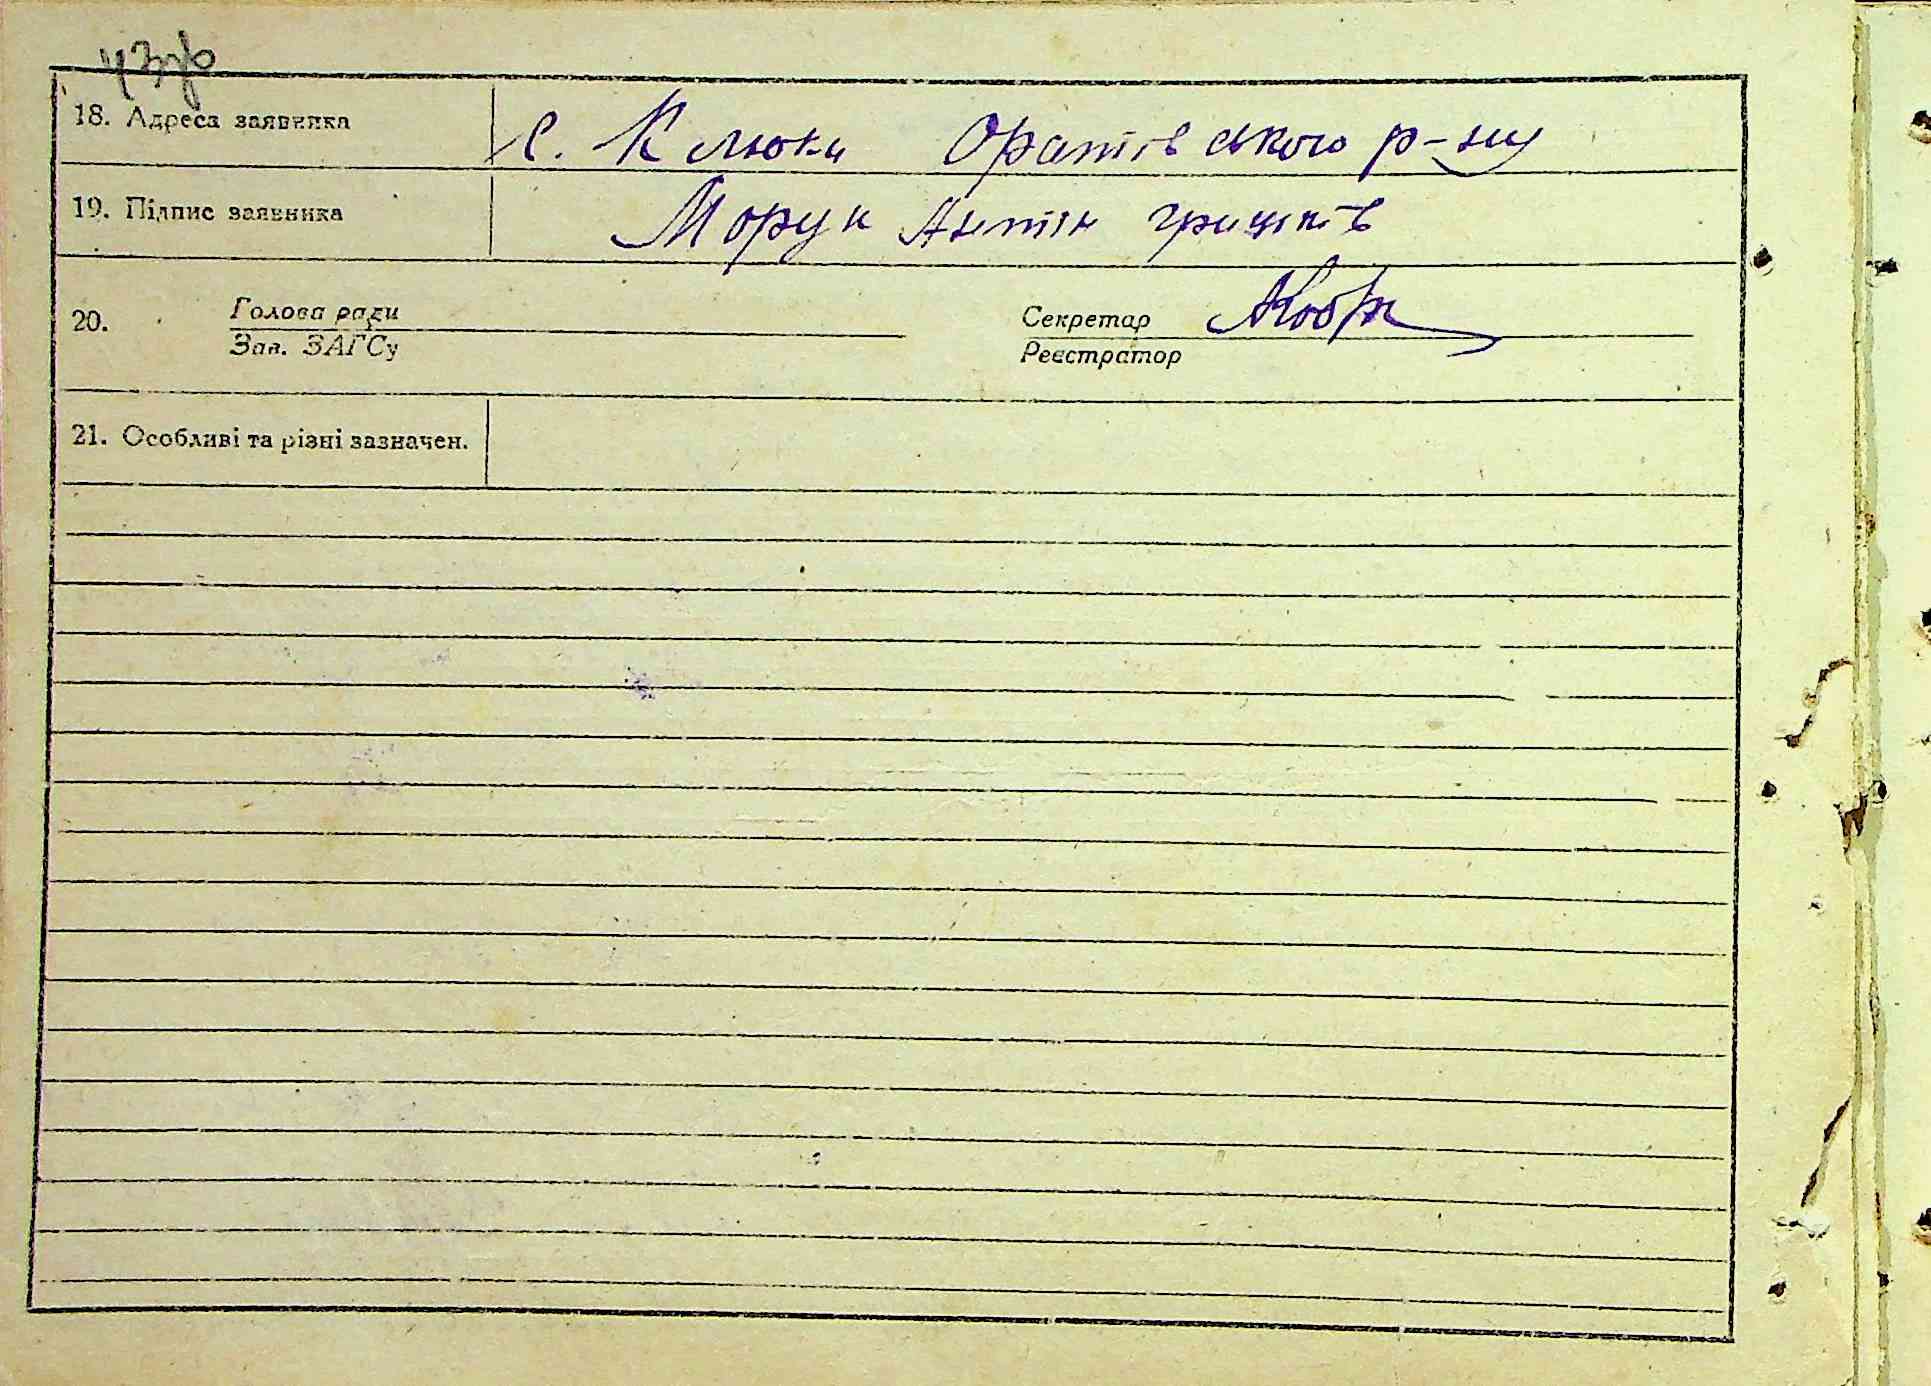 43зв
18. Адреса заявника с. Клюки Оратівського р-ну
19. Підпис заявника Морук Антін Грицьків
20. Голова ради Секретар
Зав. ЗАГСу Реєстратор
21. Особливі та різні зазначен.